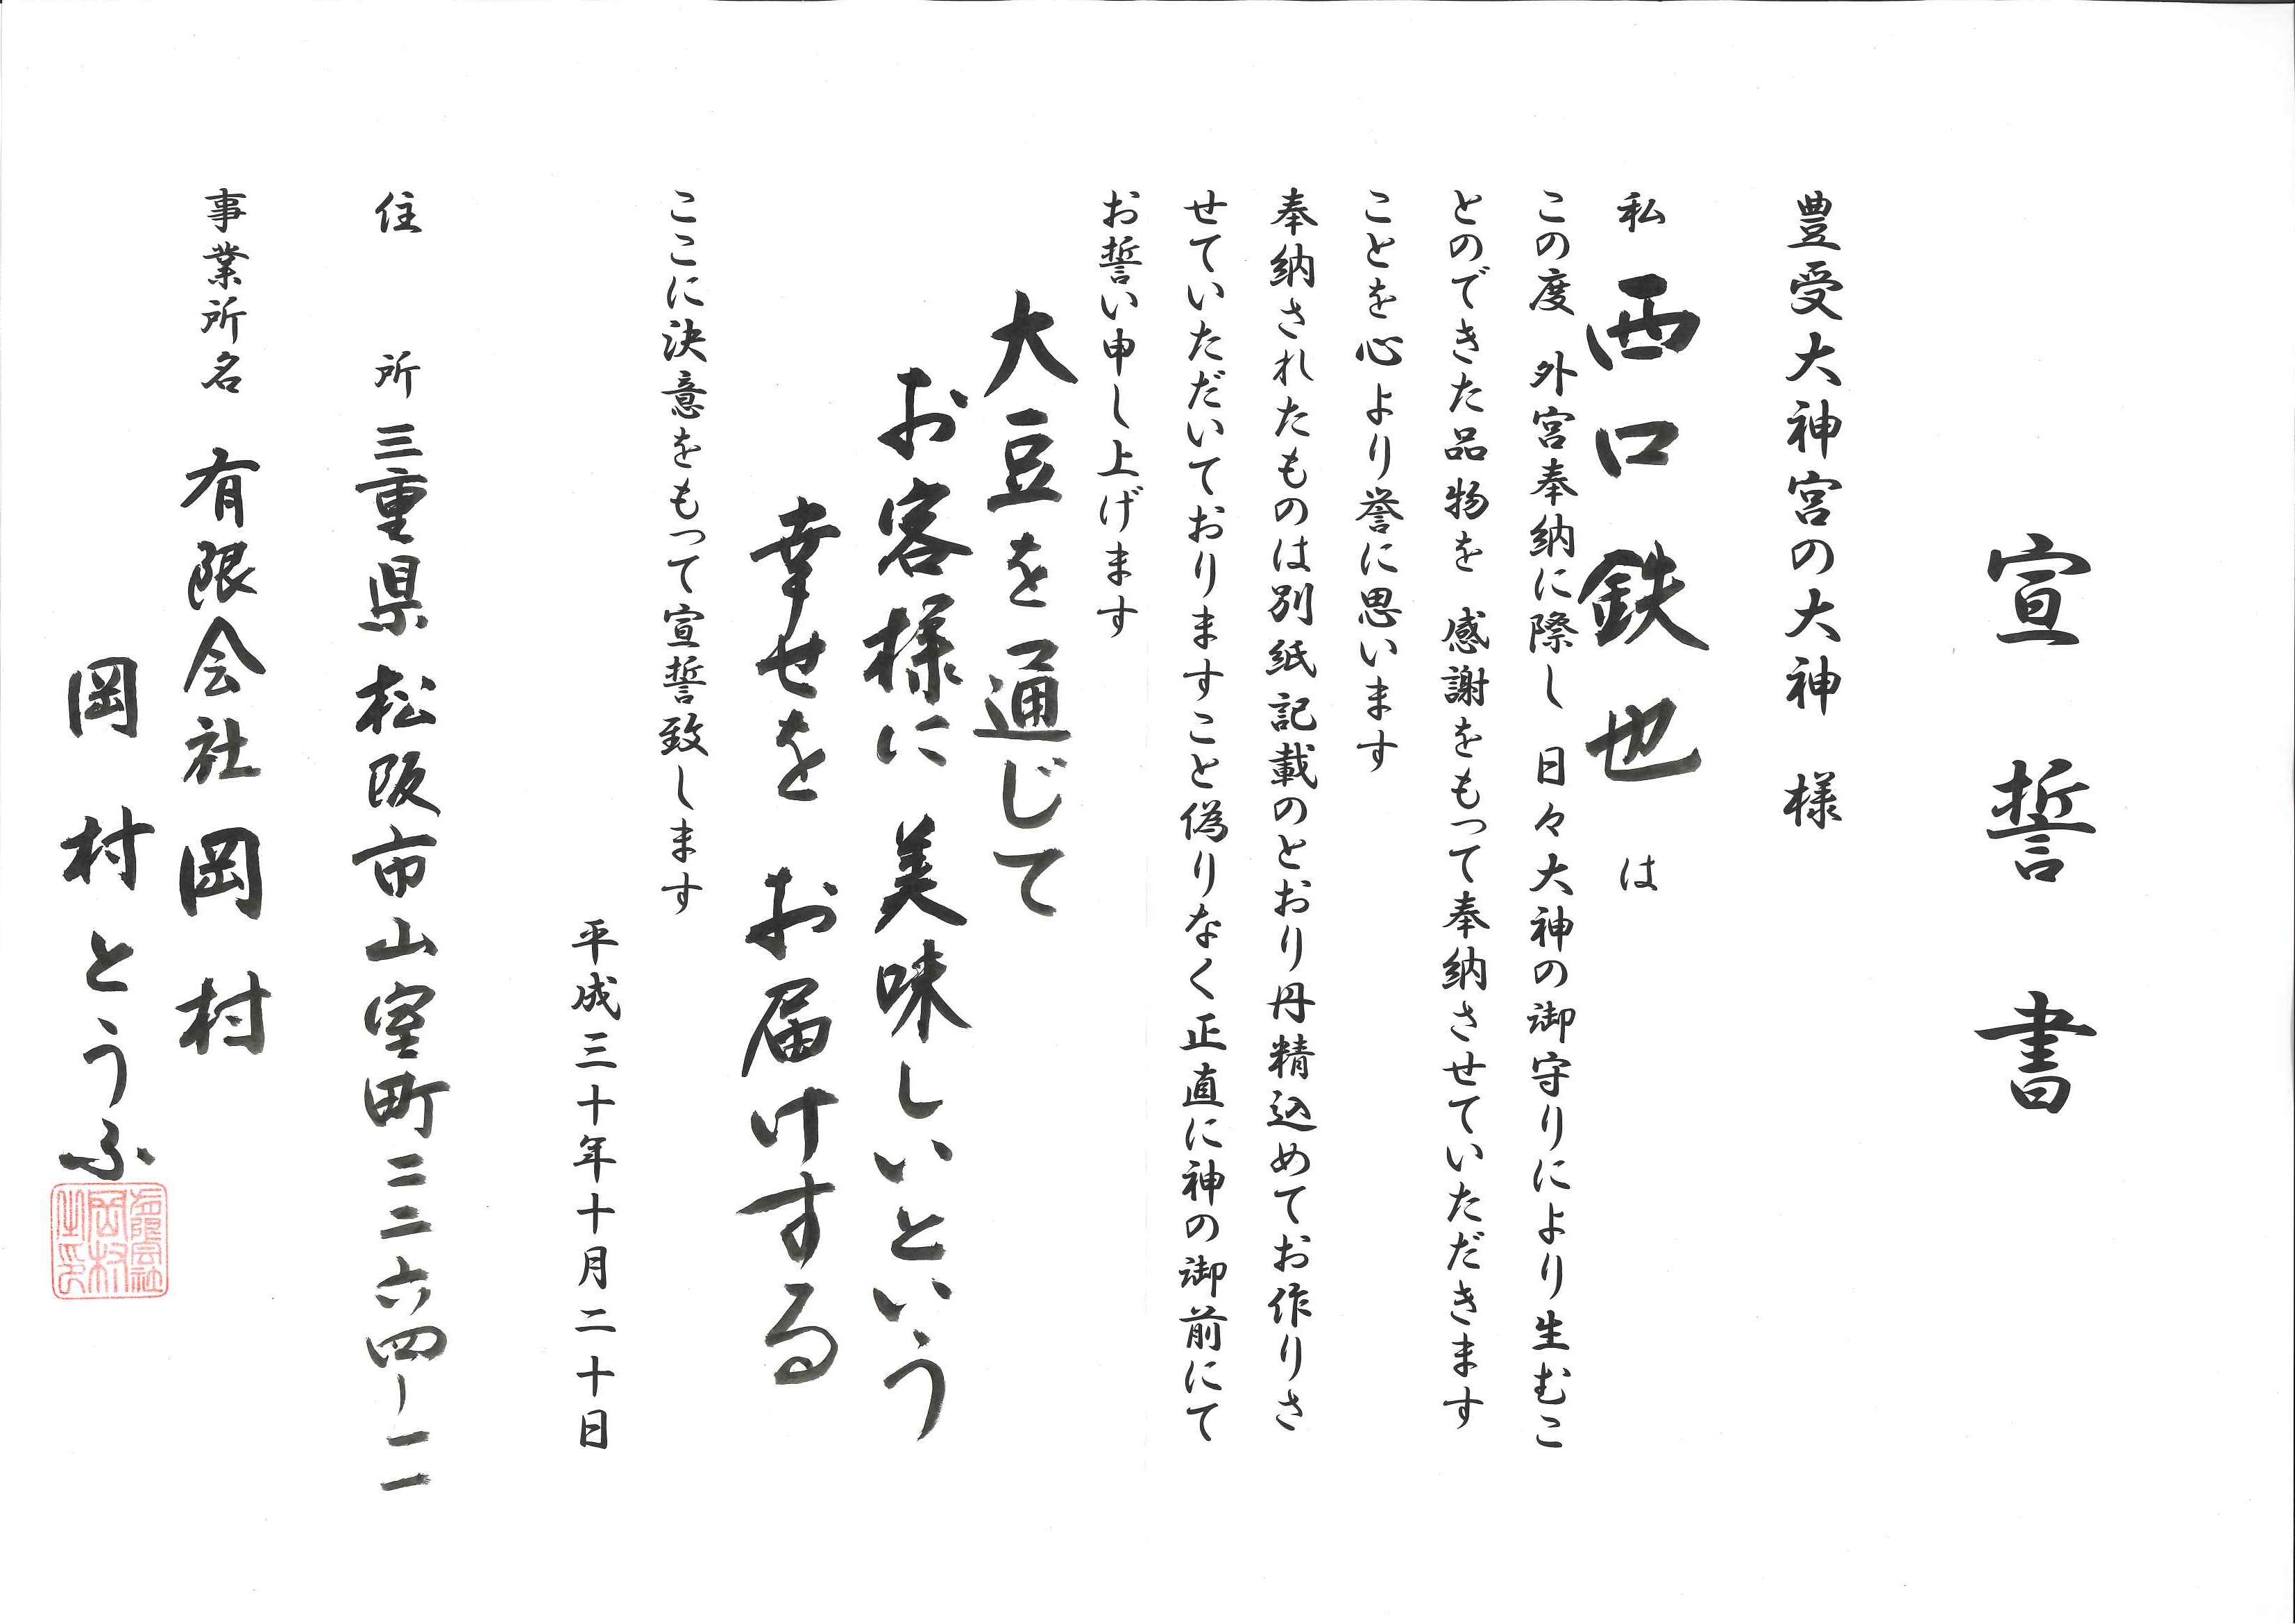 宣誓書
豊受大神宮の大神 様
私 西口鉄也 は
この度 外宮奉納に際し 日々大神の御守りにより生むこ
とのできた品物を 感謝をもって奉納させていただきます
ことを心より誉に思います
奉納されたものは別紙記載のとおり丹精込めてお作りさ
せていただいておりますこと偽りなく正直に神の御前にて
お誓い申し上げます
大豆を通じて
お客様に 美味しいという
幸せを お届けする
ここに決意をもって宣誓致します
平成三十年十月二十日
住 所 三重県松阪市山室町二三六四ー一一
事業所名 有限会社 岡村
岡村とうふ
有限会社岡村之印